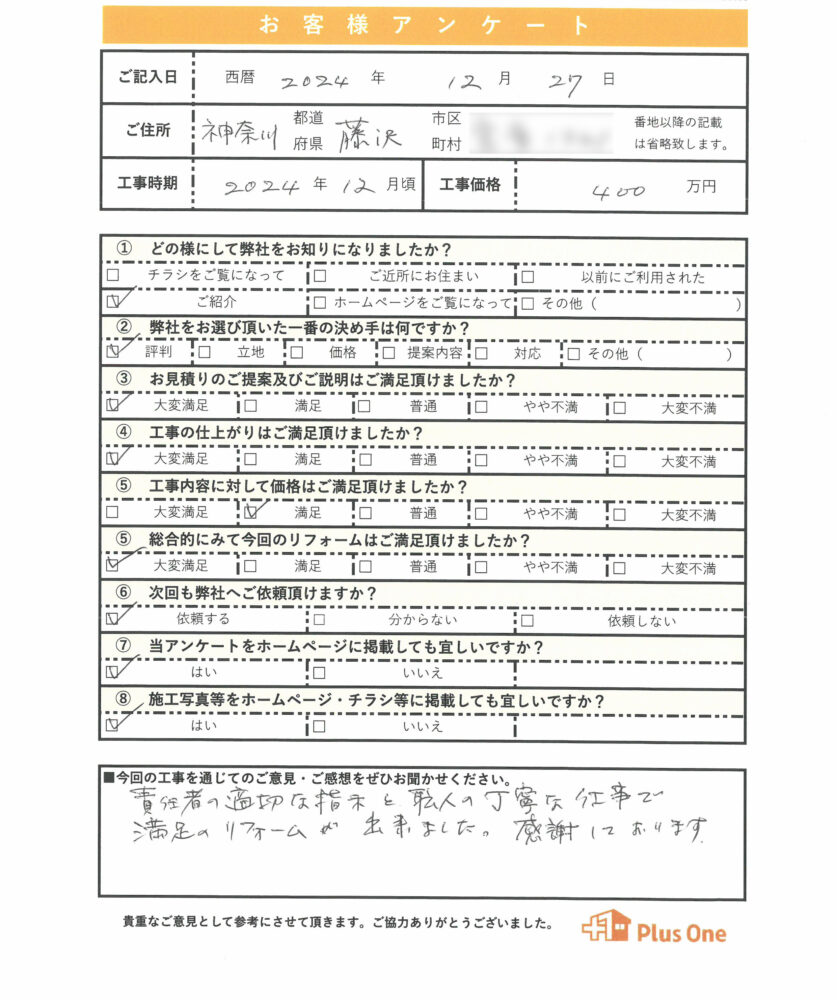 お客様アンケート
ご記入日 西暦 2024 年 12 月 27 日
ご住所 神奈川 都道府県 藤沢 市区町村 番地以降の記載は省略致します。
工事時期 2024 年 12 月頃 工事価格 400 万円
① どの様にして弊社をお知りになりましたか？
☐ チラシをご覧になって ☐ ご近所にお住まい ☐ 以前にご利用された
☑ ご紹介 ☐ ホームページをご覧になって ☐ その他（ ）
② 弊社をお選び頂いた一番の決め手は何ですか？
☑ 評判 ☐ 立地 ☐ 価格 ☐ 提案内容 ☐ 対応 ☐ その他（ ）
③ お見積りのご提案及びご説明はご満足頂けましたか？
☑ 大変満足 ☐ 満足 ☐ 普通 ☐ やや不満 ☐ 大変不満
④ 工事の仕上がりはご満足頂けましたか？
☑ 大変満足 ☐ 満足 ☐ 普通 ☐ やや不満 ☐ 大変不満
⑤ 工事内容に対して価格はご満足頂けましたか？
☐ 大変満足 ☑ 満足 ☐ 普通 ☐ やや不満 ☐ 大変不満
⑤ 総合的にみて今回のリフォームはご満足頂けましたか？
☑ 大変満足 ☐ 満足 ☐ 普通 ☐ やや不満 ☐ 大変不満
⑥ 次回も弊社へご依頼頂けますか？
☑ 依頼する ☐ 分からない ☐ 依頼しない
⑦ 当アンケートをホームページに掲載しても宜しいですか？
☑ はい ☐ いいえ
⑧ 施工写真等をホームページ・チラシ等に掲載しても宜しいですか？
☑ はい ☐ いいえ
■今回の工事を通じてのご意見・ご感想をぜひお聞かせください。
責任者の適切な指示と職人の丁寧な仕事で
満足のリフォームが出来ました。感謝しております
貴重なご意見として参考にさせて頂きます。ご協力ありがとうございました。
Plus One